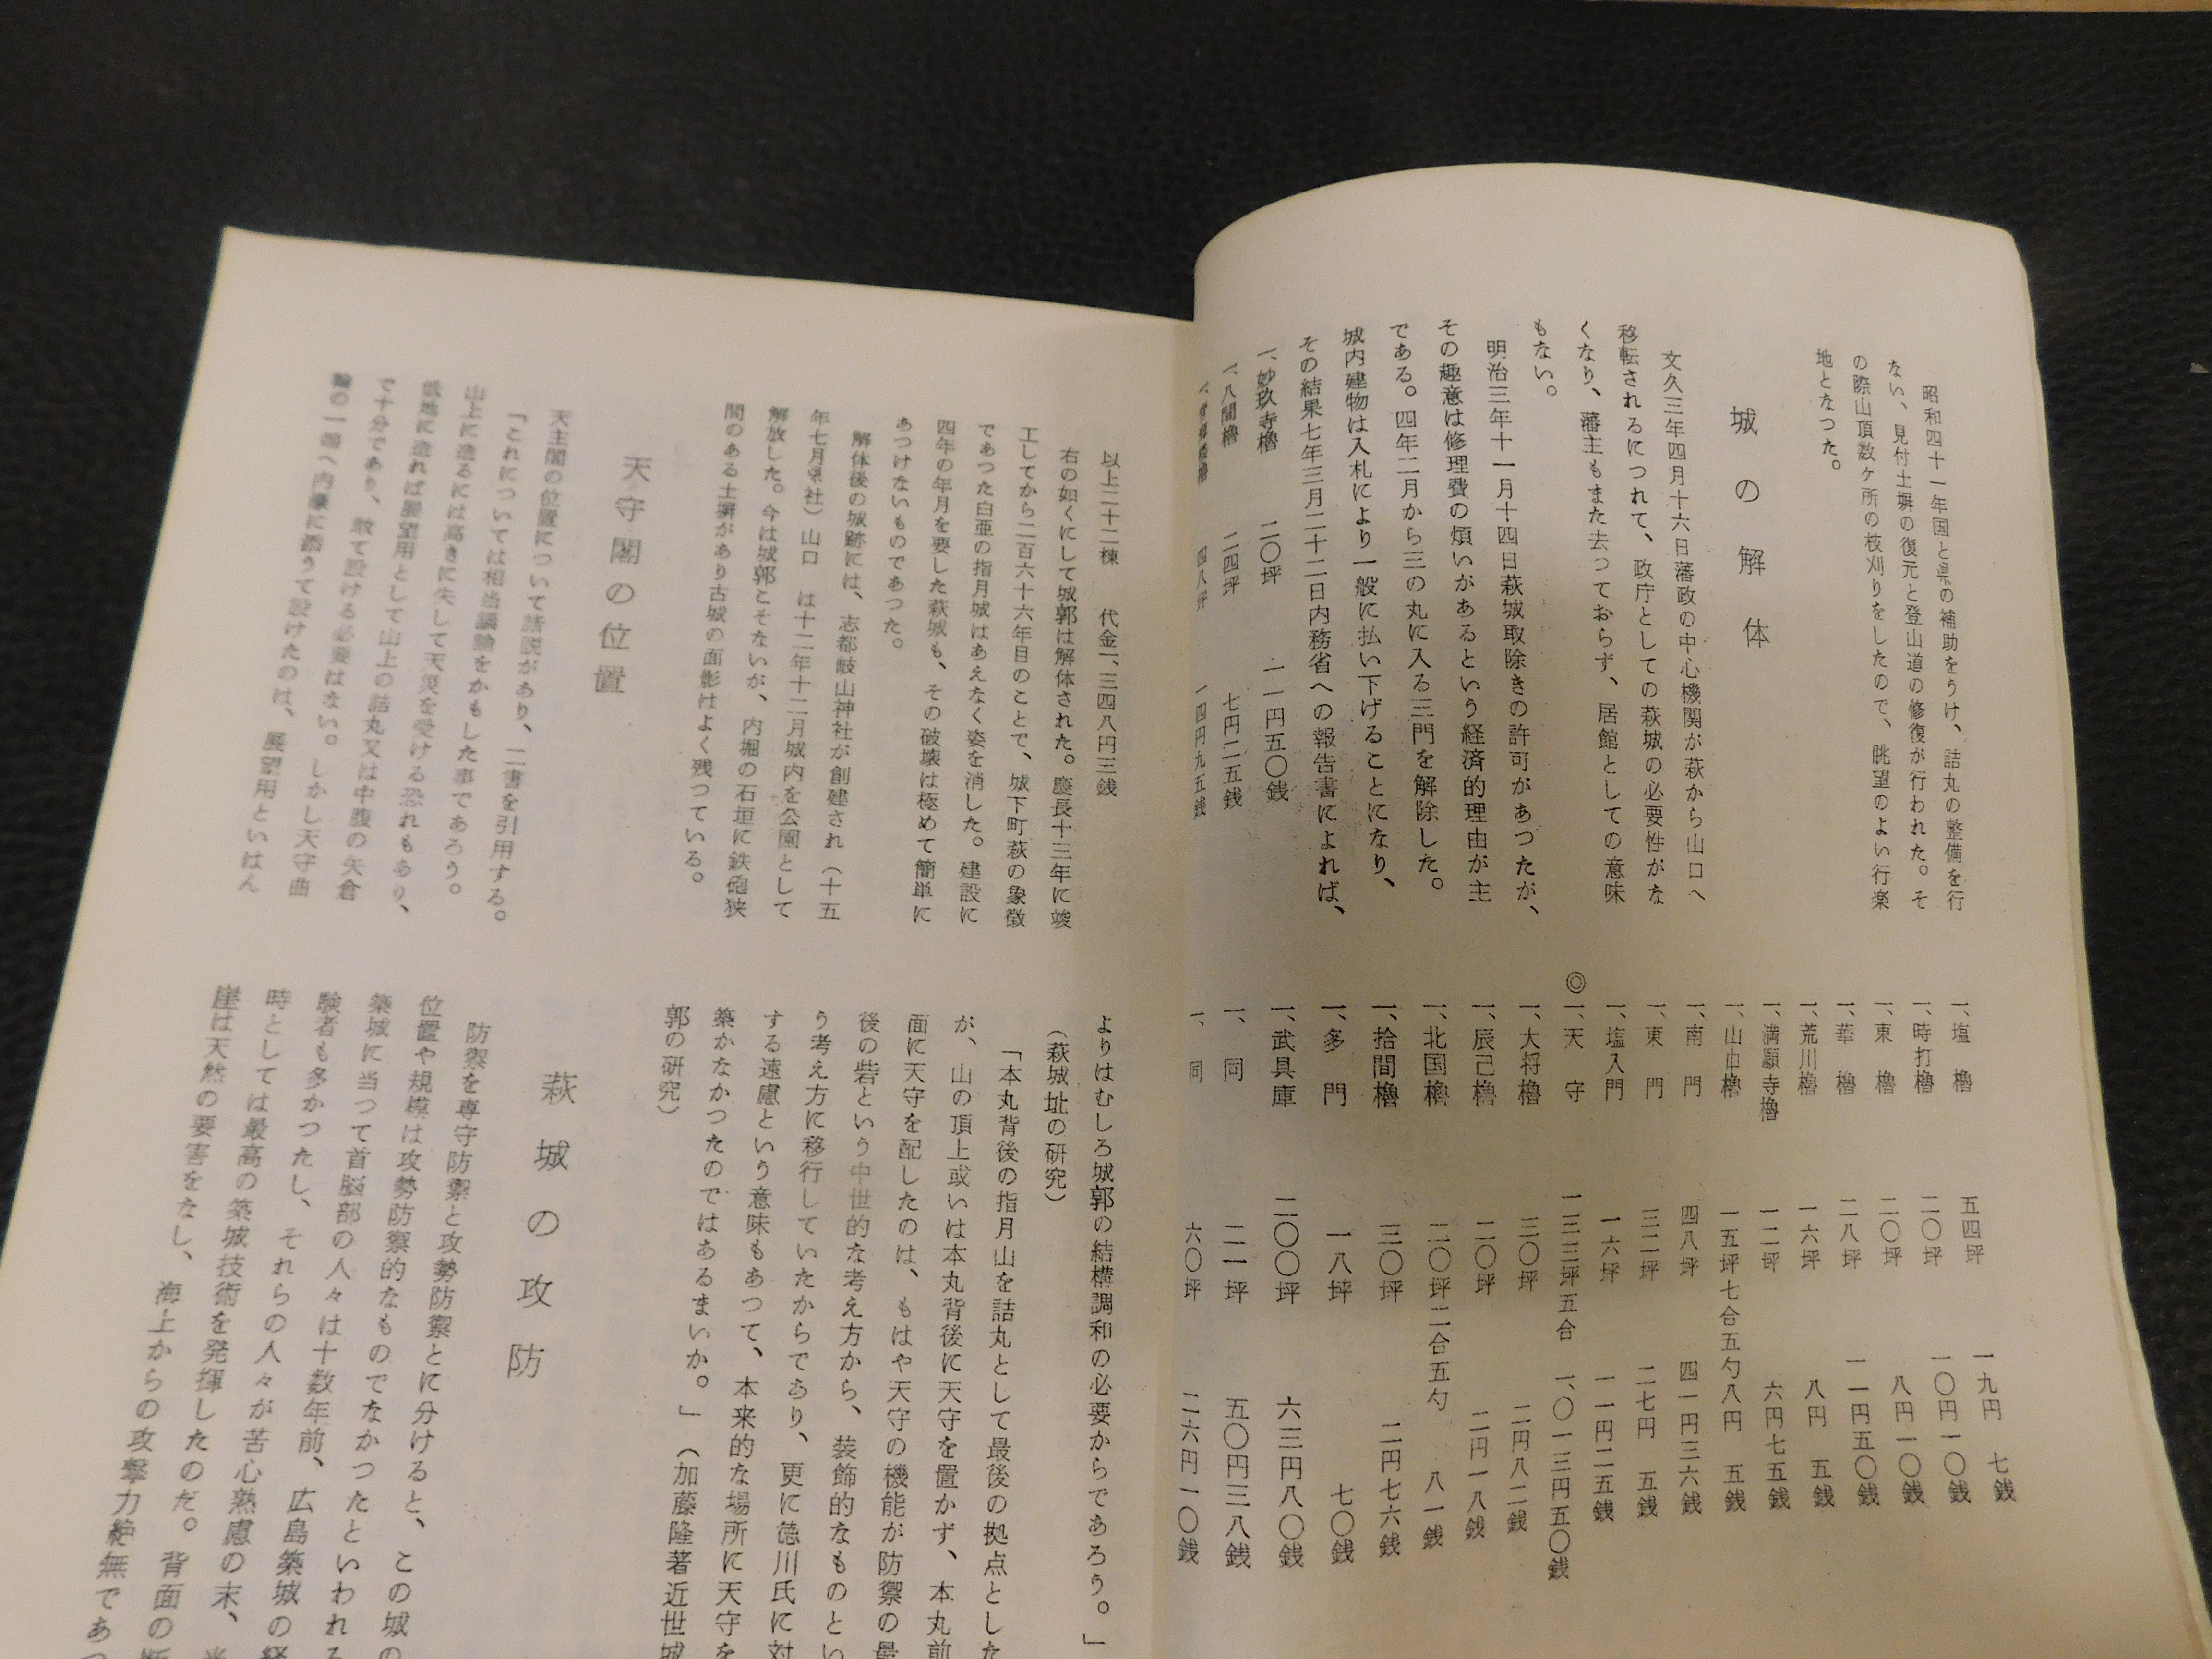 昭和四十一年国と県の補助をうけ、詰丸の整備を行
ない、見付土塀の復元と登山道の修復が行われた。そ
の際山頂数ケ所の枝刈りをしたので、眺望のよい行楽
地となつた。
城の解体
文久三年四月十六日藩政の中心機関が萩から山口へ
移転されるにつれて、政庁としての萩城の必要性がな
くなり、藩主もまた去つておらず、居館としての意味
もない。
明治三年十一月十四日萩城取除きの許可があつたが、
その趣意は修理費の煩いがあるという経済的理由が主
である。四年二月から三の丸に入る三門を解除した。
城内建物は入札により一般に払い下げることになり、
その結果七年三月二十二日内務省への報告書によれば、
一、妙玖寺櫓 二〇坪 一一円五〇銭
一、八間櫓 二四坪 七円二五銭
四八坪 一四円九五銭
一、塩櫓 五四坪 一九円七銭
一、時打櫓 二〇坪 一〇円一〇銭
一、東櫓 二〇坪 八円一〇銭
一、華櫓 二八坪 一一円五〇銭
一、荒川櫓 一六坪 八円五銭
一、満願寺櫓 一二坪 六円七五銭
一、山由櫓 一五坪七合五勺 八円五銭
一、南門 四八坪 四一円三六銭
一、東門 三二坪 二七円五銭
一、塩入門 一六坪 一一円二五銭
◎一、天守 一三三坪五合 一、〇一三円五〇銭
一、大将櫓 三〇坪 二円八二銭
一、辰己櫓 二〇坪 二円一八銭
一、北国櫓 二〇坪二合五勺 八一銭
一、拾間櫓 三〇坪 二円七六銭
一、多門 一八坪 七〇銭
一、武具庫 二〇〇坪 六三円八〇銭
一、同 二一一坪 五〇円三八銭
一、同 六〇坪 二六円一〇銭
以上二十二棟 代金一、三四八円三銭
右の如くにして城郭は解体された。慶長十三年に竣
工してから二百六十六年目のことで、城下町萩の象徴
であつた白亜の指月城はあえなく姿を消した。建設に
四年の年月を要した萩城も、その破壊は極めて簡単に
あつけないものであつた。
解体後の城跡には、志都岐山神社が創建され(十五
年七月県社)山口 は十二年十二月城内を公園として
解放した。今は城郭こそないが、内堀の石垣に鉄砲狭
間のある土塀があり古城の面影はよく残つている。
天守閣の位置
天主閣の位置について諸説があり、二書を引用する。
「これについては相当議論をかもした事であろう。
山上に造るには高きに失して天災を受ける恐れもあり、
低地に造れば展望用として山上の詰丸又は中腹の矢倉
で十分であり、敢て設ける必要はない。しかし天守曲
輪の一端へ内濠に添うて設けたのは、展望用といはん
よりはむしろ城郭の結構調和の必要からであろう。」
(萩城址の研究)
「本丸背後の指月山を詰丸として最後の拠点とした
が、山の頂上或いは本丸背後に天守を置かず、本丸前
面に天守を配したのは、もはや天守の機能が防禦の最
後の砦という中世的な考え方から、装飾的なものとい
う考え方に移行していたからであり、更に徳川氏に対
する遠慮という意味もあつて、本来的な場所に天守を
築かなかつたのではあるまいか。」(加藤隆著近世城
郭の研究)
萩城の攻防
防禦を専守防禦と攻勢防禦とに分けると、この城の
位置や規模は攻勢防禦的なものでなかつたといわれる
築城に当つて首脳部の人々は十数年前、広島築城の経
験者も多かつたし、それらの人々が苦心熟慮の末、
時としては最高の築城技術を発揮したのだ。背面の
崖は天然の要害をなし、海上からの攻撃力絶無であつ